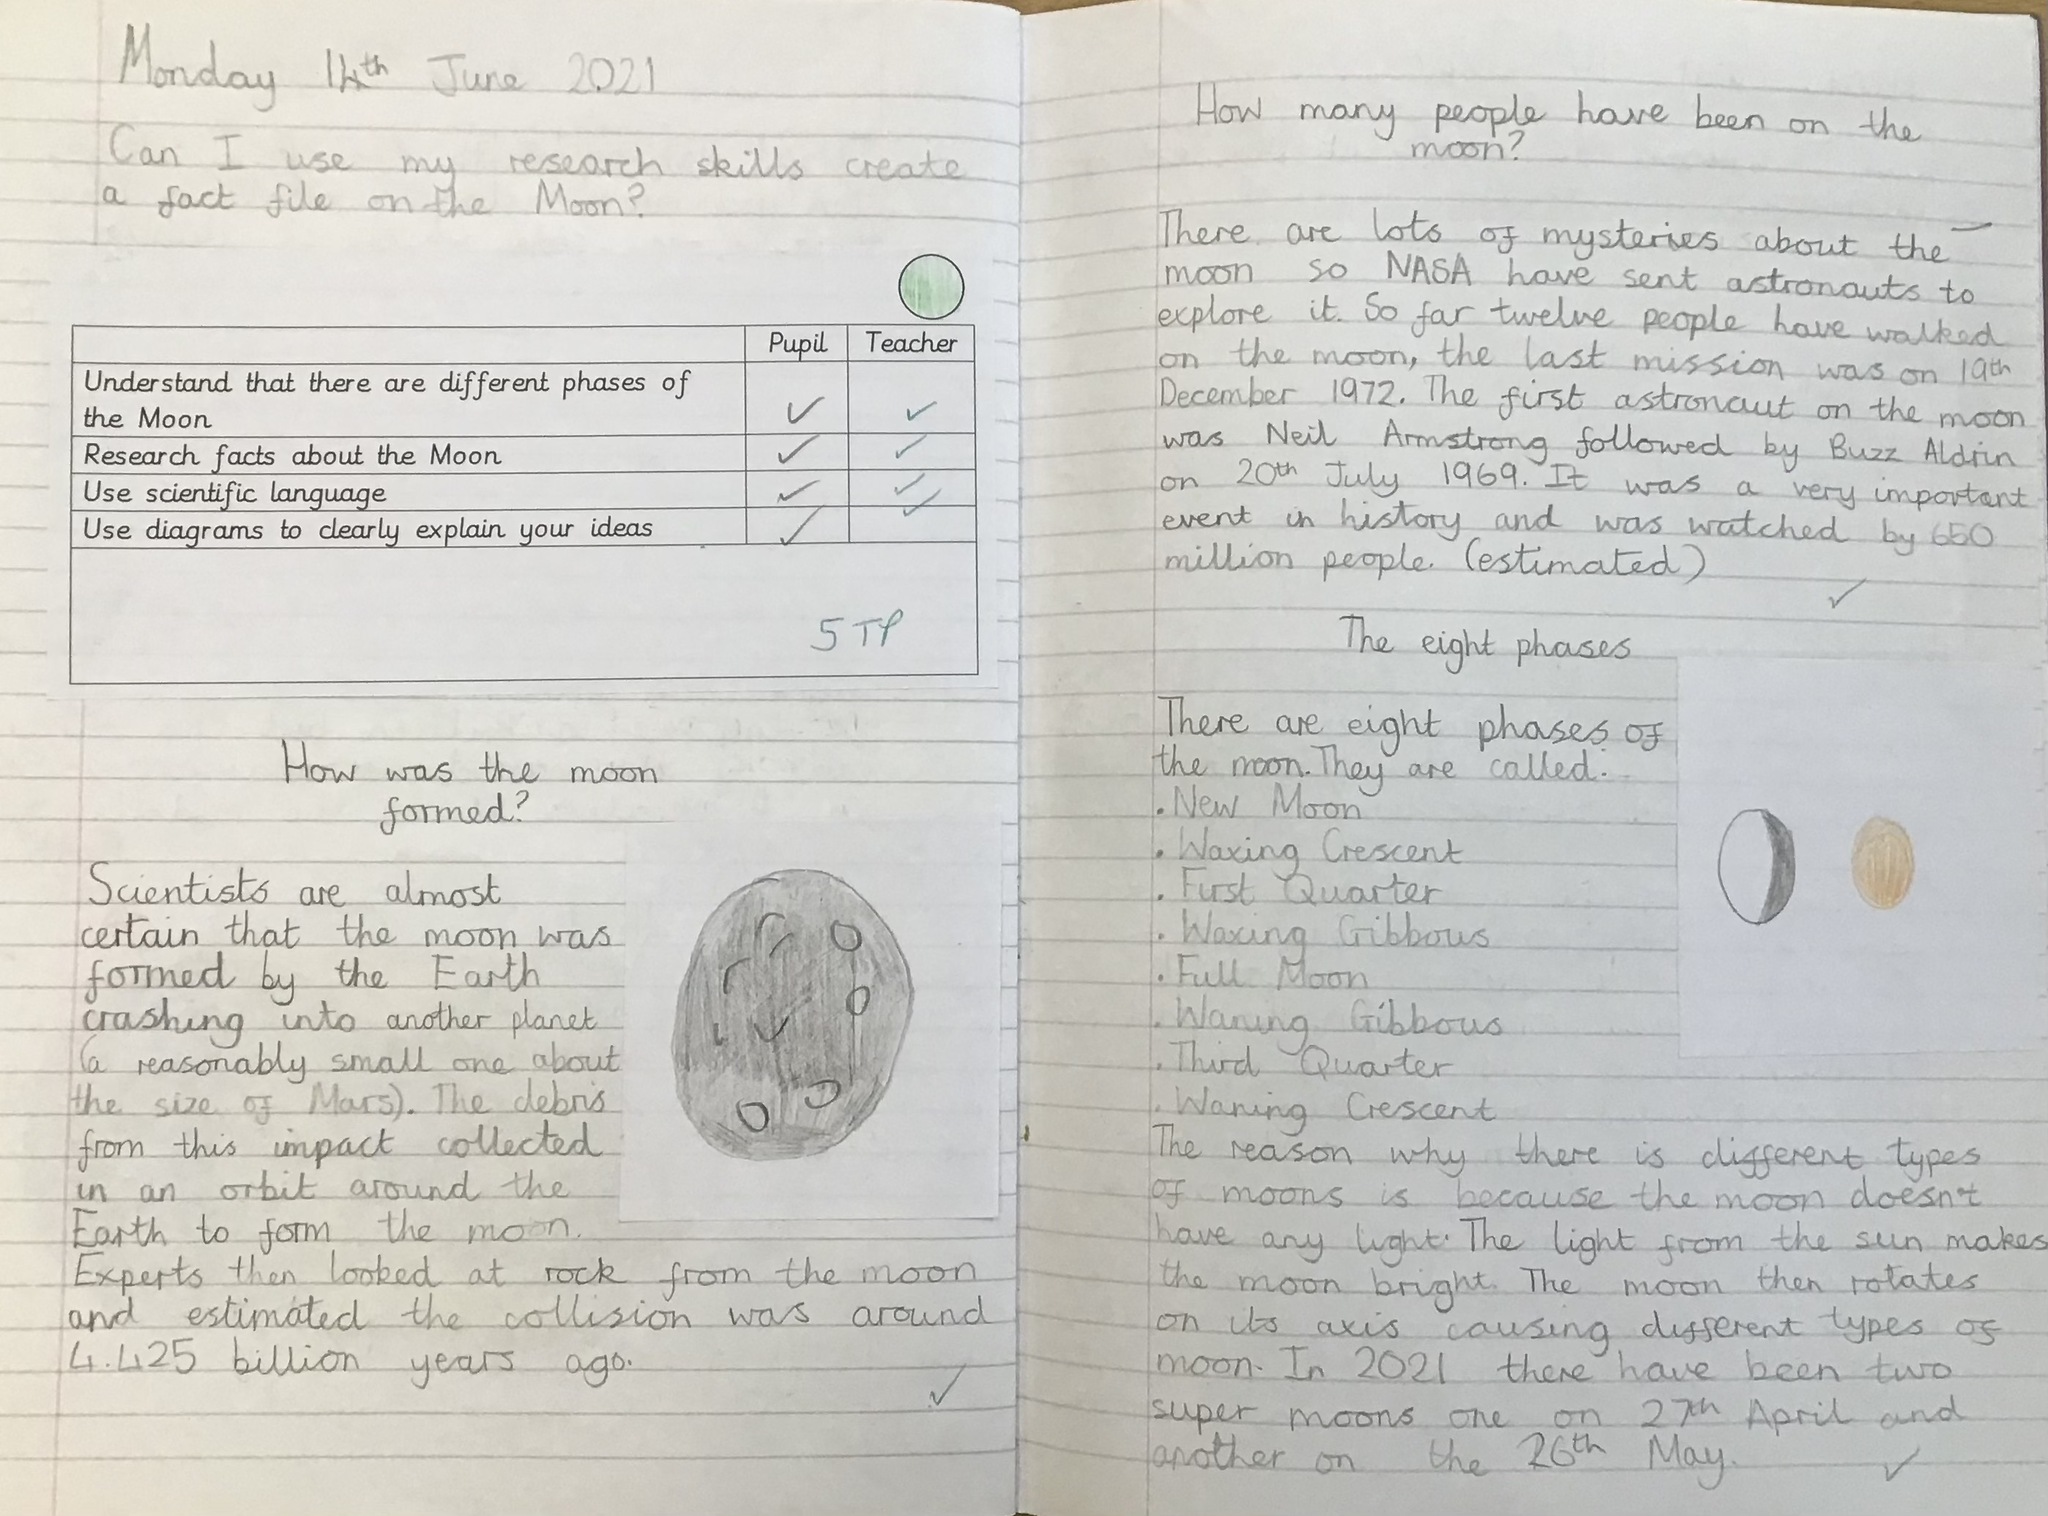 Monday 14th June 2021
Can I use my research skills create
a fact file on the Moon?
Pupil Teacher
Understand that there are different phases of
the Moon
Research facts about the Moon
Use scientific language
Use diagrams to clearly explain your ideas
5 TP
How was the moon
formed?
Scientists are almost
certain that the moon was
formed by the Earth
crashing into another planet
(a reasonably small one about
the size of Mars). The debris
from this impact collected
in an orbit around the
Earth to form the moon.
Experts then looked at rock from the moon
and estimated the collision was around
4.425 billion years ago.
How many people have been on the
moon?
There are lots of mysteries about the
moon so NASA have sent astronauts to
explore it. So far twelve people have walked
on the moon, the last mission was on 19th
December 1972. The first astronaut on the moon
was Neil Armstrong followed by Buzz Aldrin
on 20th July 1969. It was a very important
event in history and was watched by 650
million people. (estimated)
The eight phases
There are eight phases of
the moon. They are called:
. New Moon
. Waxing Crescent
. First Quarter
. Waxing Gibbous
. Full Moon
. Waning Gibbous
. Third Quarter
. Waning Crescent
The reason why there is different types
of moons is because the moon doesn't
have any light. The light from the sun makes
the moon bright. The moon then rotates
on its axis causing different types of
moon. In 2021 there have been two
super moons one on 27th April and
another on the 26th May.